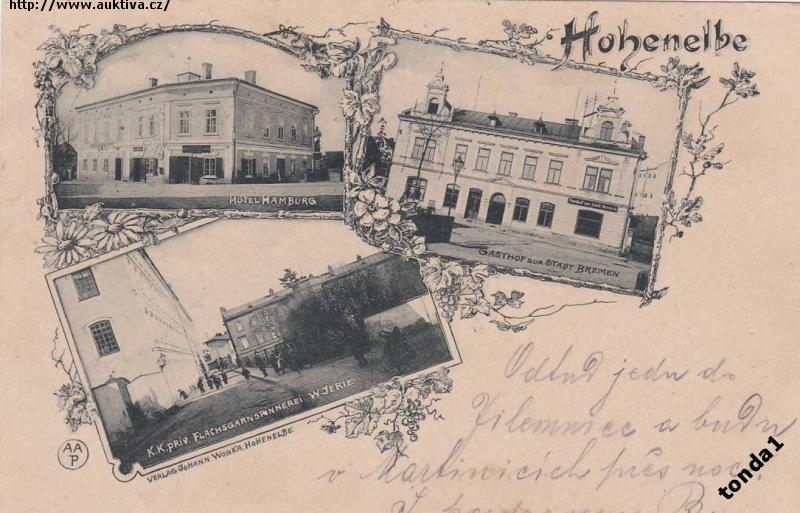 http://www.auktiva.cz/
Hohenelbe
HOTEL HAMBURG
GASTHOF ZUR STADT BREMEN
K.K. PRIV. FLACHSGARNSPINNEREI W. JERIE
VERLAG JOHANN WONKA, HOHENELBE
AA
P
Odtud jedu do
Jilemnice a budu
v Martinicích přes noc.
tonda1